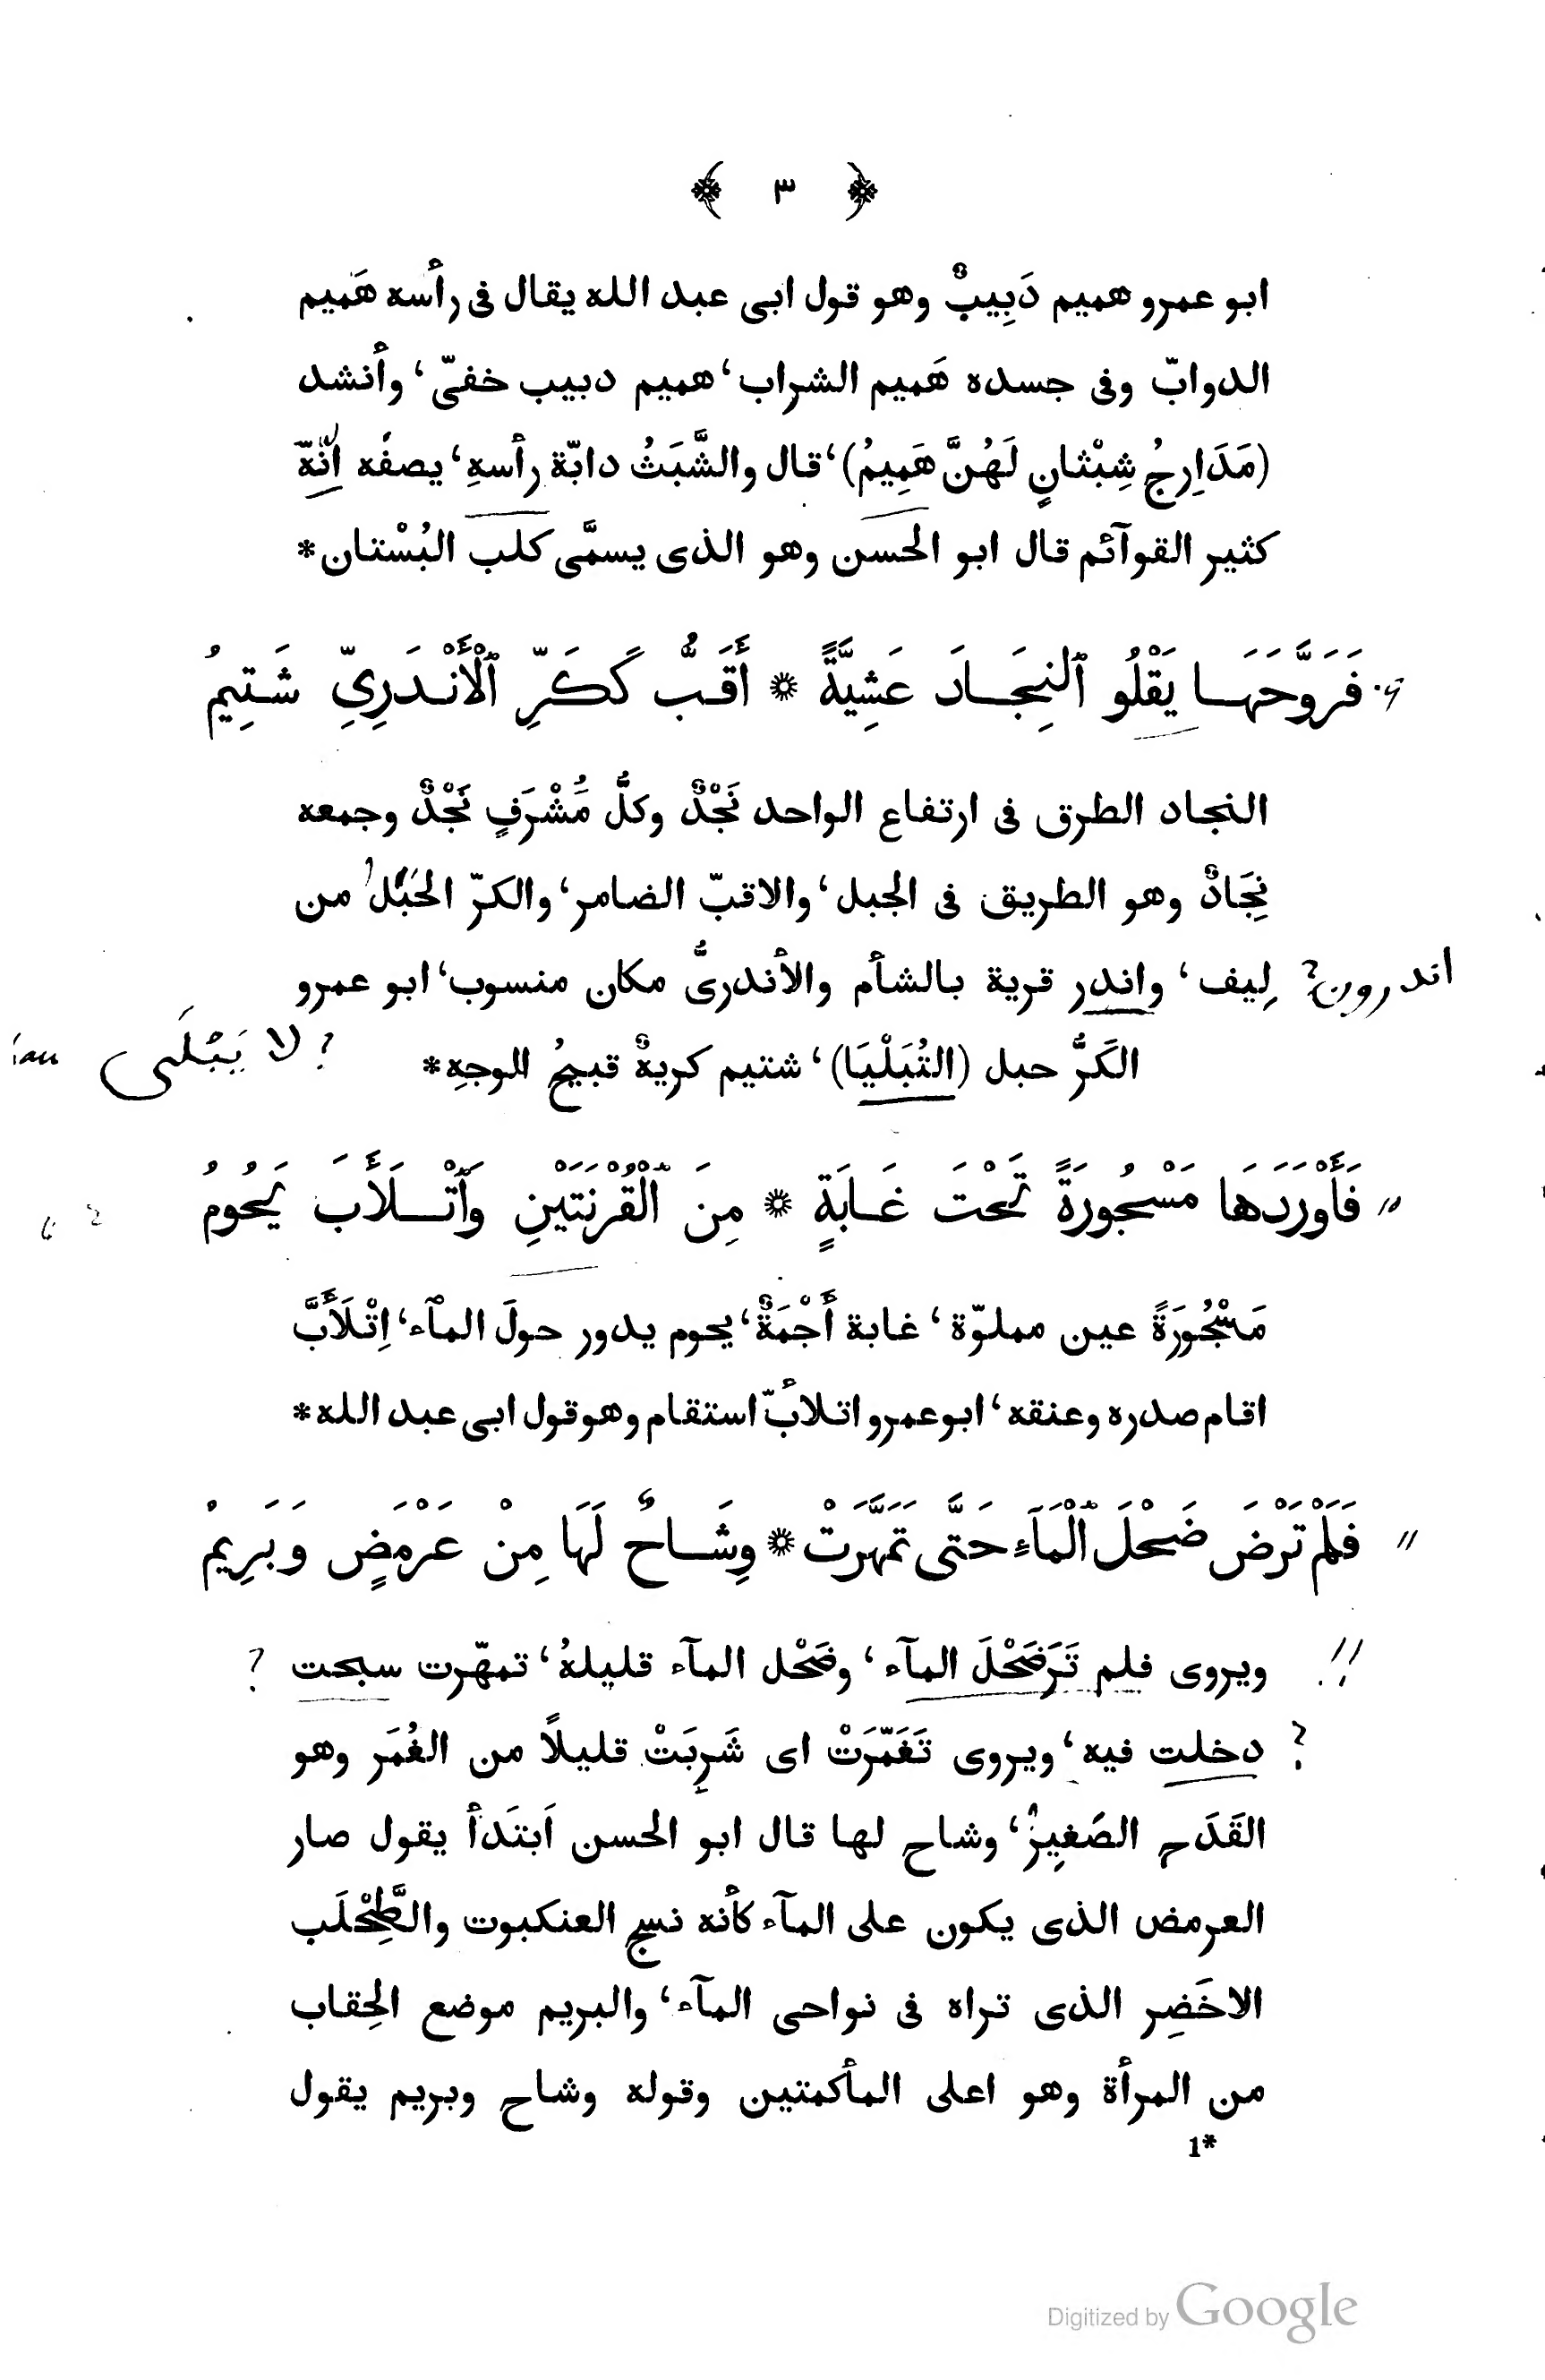 ﴿ ٣ ﴾
ابو عمرو هميم دَبِيبٌ وهو قول ابى عبد الله يقال فى رأسه هَميم
الدوابّ وفى جسده هَميم الشراب، هميم دبيب خفىّ، وأنشد
(مَدَارِجُ شِبْثانٍ لَهُنَّ هَمِيمُ)، قال والشَّبَثُ دابّة رأسهِ، يصفُه انّهُ
كثير القوآئم قال ابو الحسن وهو الذى يسمَّى كلب البُسْتان*
فَرَوَّحَهَا يَقْلُو ٱلنِجَادَ عَشِيَّةً * أَقَبُّ كَكَرِّ ٱلْأَنْدَرِيِّ شَتِيمُ
النجاد الطرق فى ارتفاع الواحد نَجْدٌ وكلُّ مُشْرَفٍ نَجْدٌ وجمعه
نِجَادٌ وهو الطريق فى الجبل، والاقبّ الضامر، والكرّ الحَبْل من
لِيف، واندر قرية بالشأم والأندرىُّ مكان منسوب، ابو عمرو
اندرون؟
الكَرُّ حبل (التُبَلْيَا)، شتيم كريهٌ قبيحُ الوجهِ*
? لا يَبْلَى
فَأَوْرَدَهَا مَسْجُورَةً تَحْتَ غَابَةٍ * مِنَ ٱلْقُرْنَتَيْنِ وَٱتْلَأَبَّ يَحُومُ
مَسْجُورَةً عين مملوّة، غابة أَجْمَةٌ، يحوم يدور حولَ المآء، اِتْلَأَبَّ
اقام صدره وعنقه، ابو عمرو اتلأبّ استقام وهو قول ابى عبد الله*
فَلَمْ تَرْضَ ضَحْلَ ٱلْمَآءِ حَتَّى تَمَهَّرَتْ * وِشَاحٌ لَهَا مِنْ عَرْمَضٍ وَبَرِيمُ
ويروى فلم تَرَضَحْلَ المآء، وضَحْل المآء قليلهُ، تمهّرت سبحت ?
? دخلت فيه، ويروى تَغَمَّرَتْ اى شَرِبَتْ قليلًا من الغُمَر وهو
القَدَح الصَغِيرُ، وشاح لها قال ابو الحسن ابتَدأ يقول صار
العرمض الذى يكون على المآء كأنه نسج العنكبوت والطِّحْلَب
الاخَضِر الذى تراه فى نواحى المآء، والبريم موضع الحِقاب
من المرأة وهو اعلى المأكمتين وقوله وشاح وبريم يقول
1*
Digitized by Google